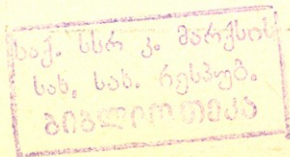 საქ. სსრ კ. მარქსის
სახ. სახ. რესპუბ.
ბიბლიოთეკა